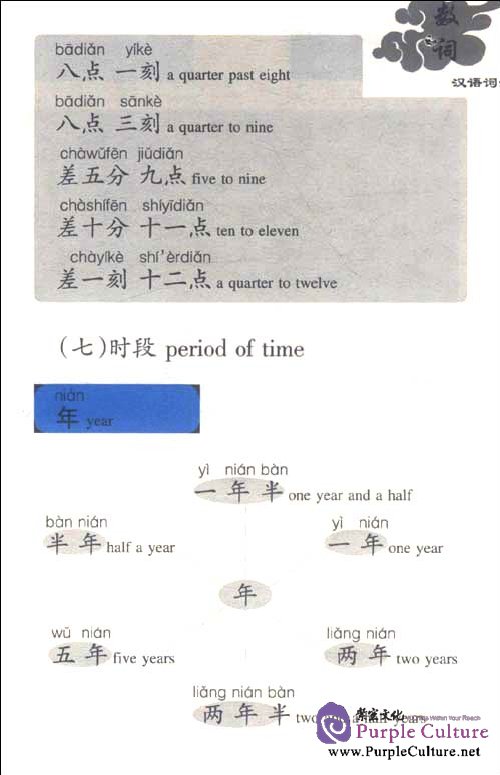 数
词
汉语词
bādiǎn yíkè
八点 一刻 a quarter past eight
bādiǎn sānkè
八点 三刻 a quarter to nine
chàwǔfēn jiǔdiǎn
差五分 九点 five to nine
chàshífēn shíyīdiǎn
差十分 十一点 ten to eleven
chàyíkè shí'èrdiǎn
差一刻 十二点 a quarter to twelve
(七)时段 period of time
nián
年 year
yì nián bàn
一年半 one year and a half
bàn nián
半年 half a year
yì nián
一年 one year
年
wǔ nián
五年 five years
liǎng nián
两年 two years
liǎng nián bàn
两年半 two and a half years
紫宸文化 Within Your Reach
Purple Culture
www.PurpleCulture.net